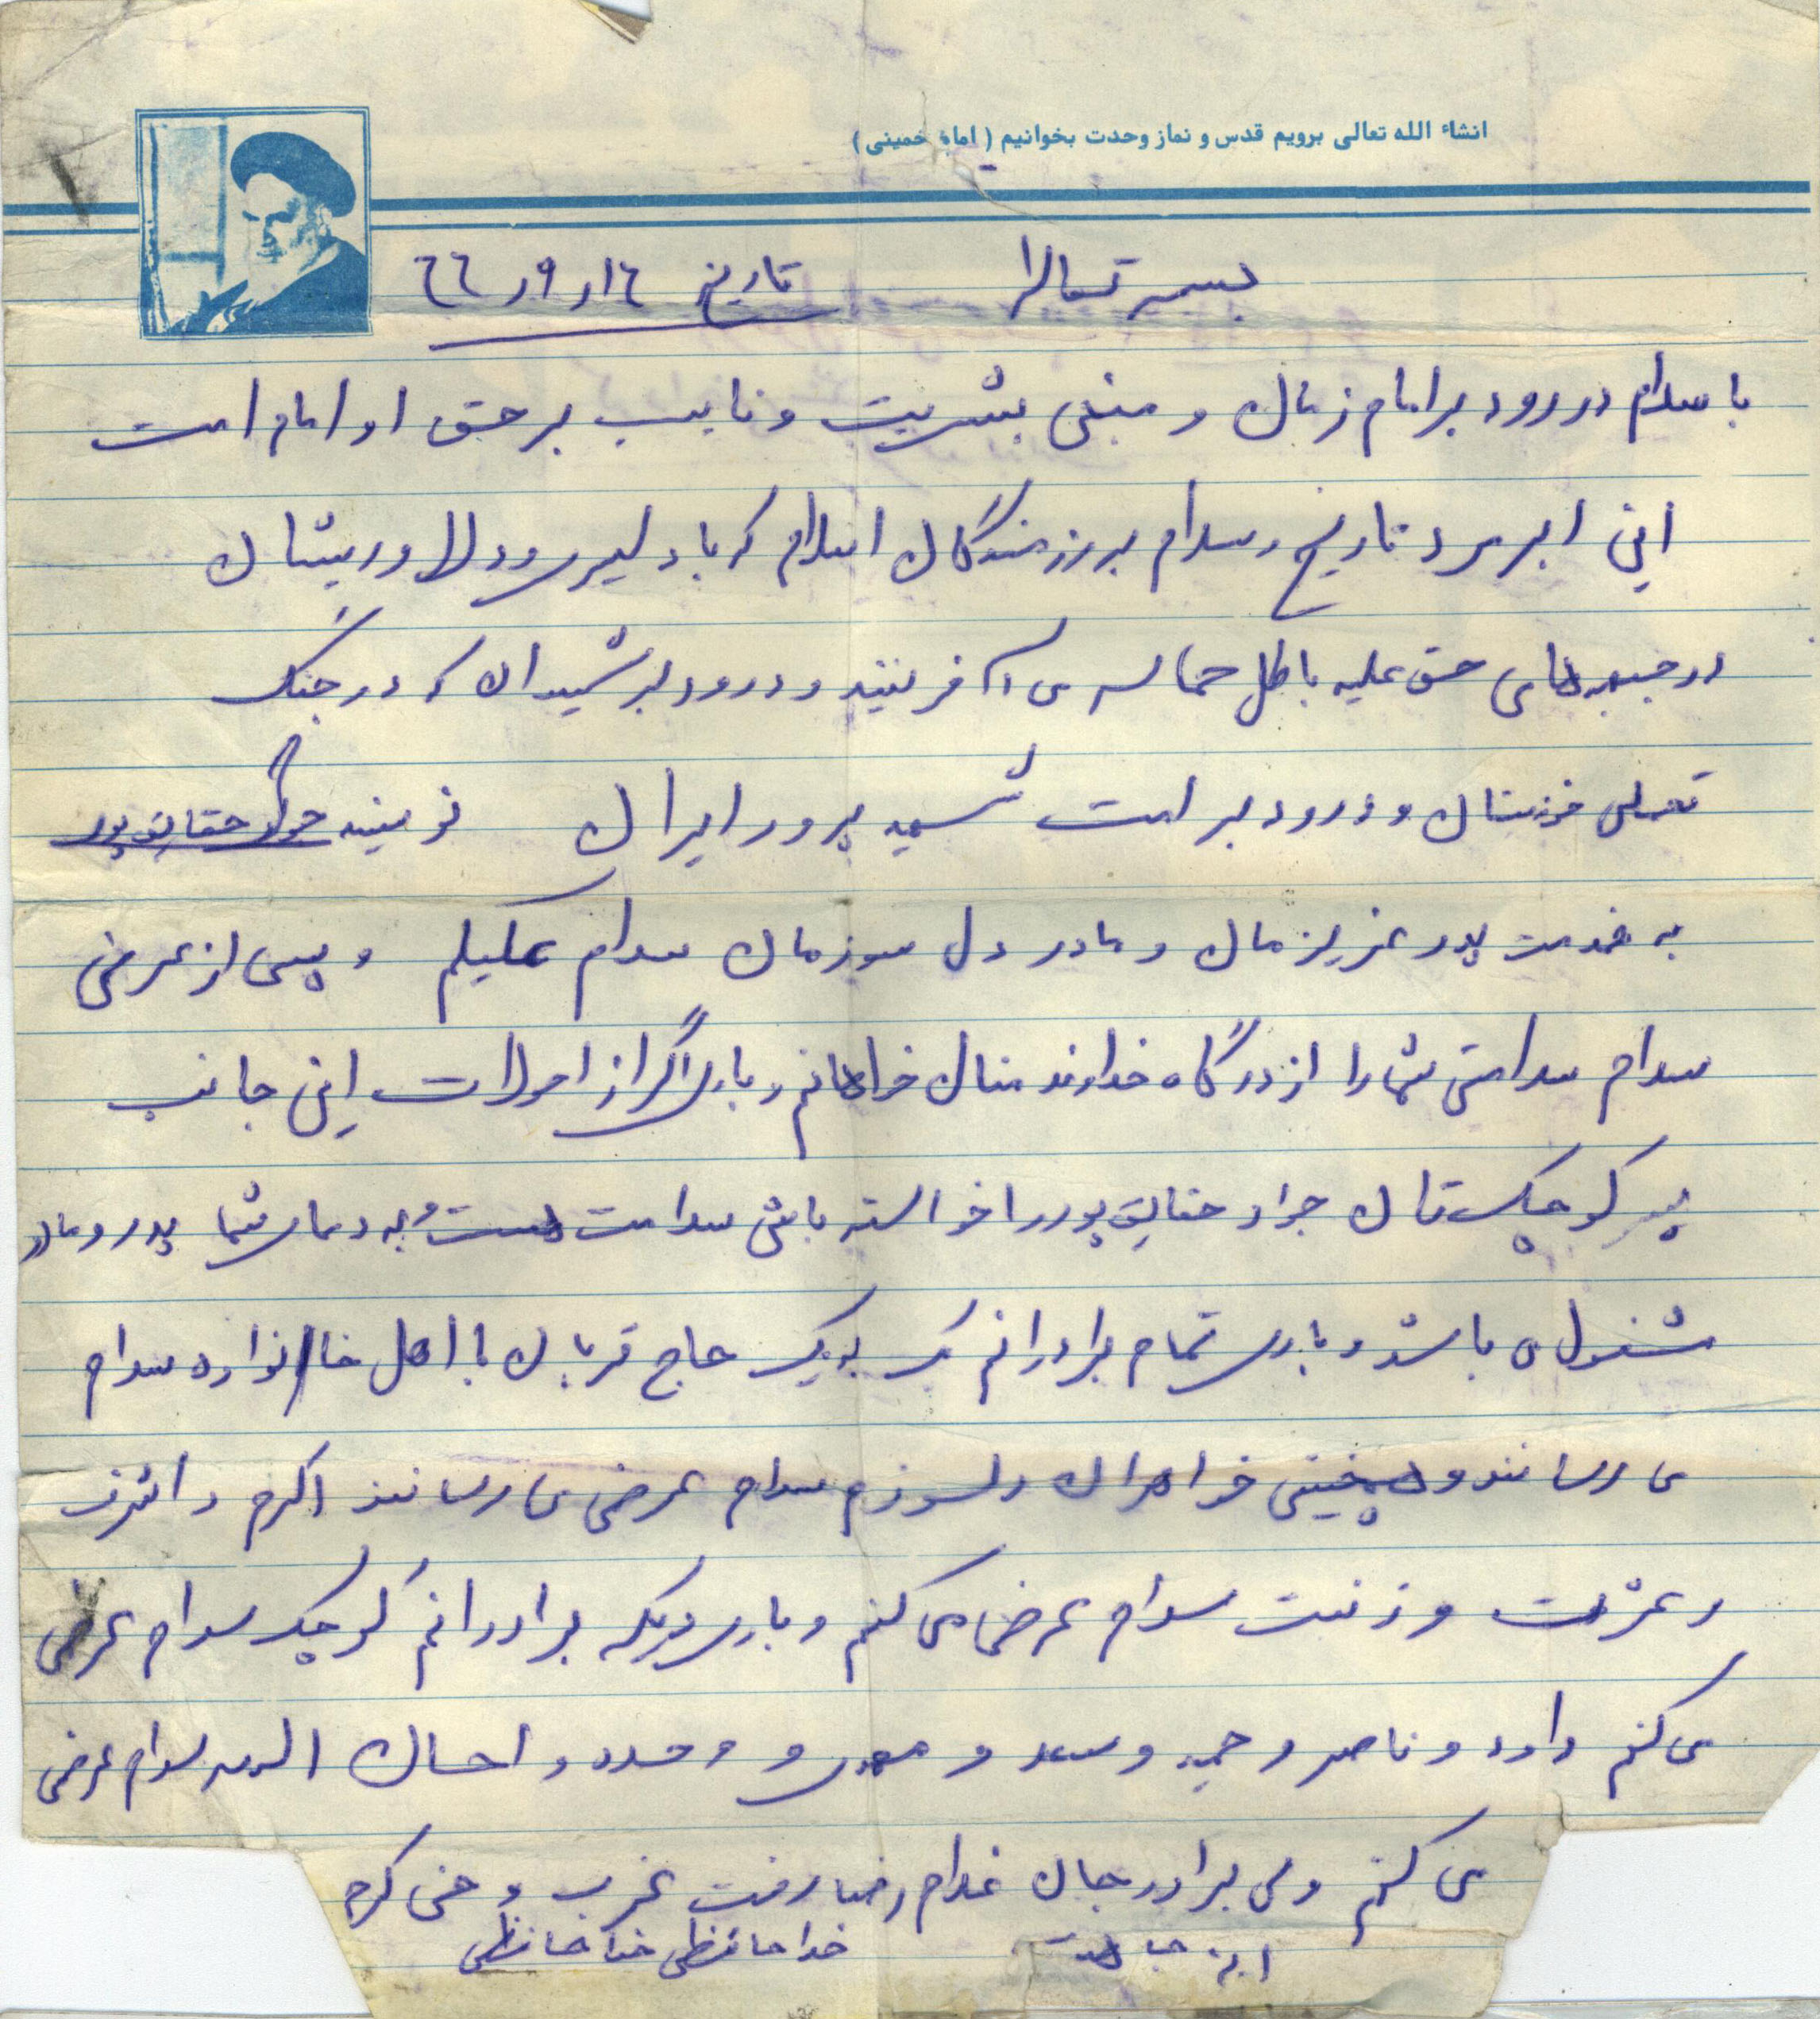 انشاء الله تعالی برویم قدس و نماز وحدت بخوانیم (امام خمینی)
بسمه تعالا تاریخ ١٤ر٩ر٦٦
با سلام درود بر امام زمان و منجی بشریت و نایب بر حق او امام امت
این ابر مرد تاریخ و سلام بر رزمندگان اسلام که با دلیری و دلاوریشان
در جبهه‌های حق علیه باطل حماسه می آفرینند و درود بر شهیدان که در جنگ
تحملی و درود بر امت شهید پرور ایران نویسنده جواد حقایق پور
به خدمت پدر عزیزمان و مادر دل سوزمان سلام علیکم و پس از عرض
سلام سلامتی شما را از درگاه خداوند منان خواهانم و باری اگر از احولات این جانب
پسر کوچکستان جواد حقایق پور را خواسته باشی سلامت هست و به دعای شما پدر و مادر
مشغول می باشد و باری تمام برادرانم یک به یک حاج قربان با اهل خانواده سلام
می رسانند و همچنین خواهران دلسوزم سلام عرض می رسانند اکرم و اشرف
و عشرت و زنیت سلام عرض می کنم و باری دیگه برادرانم کوچک سلام عرض
می کنم داود و ناصر و حمید و سعید و مهدی و و احسان سلام عرض
می کنم ولی برادر جان غلام رضا رفت غرب و
خداحافظی خداحافظی